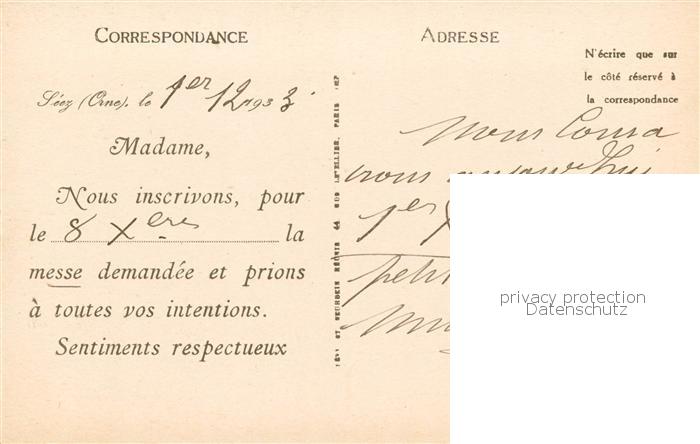 CORRESPONDANCE
Séez (Orne), le 1er 12 1933
Madame,
Nous inscrivons, pour
le 8 Xbre la
messe demandée et prions
à toutes vos intentions.
Sentiments respectueux
LÉVY ET NEURDEIN RÉUNIS 44 RUE LETELLIER, PARIS IMP
ADRESSE
N'écrire que sur
le côté réservé à
la correspondance
Nous
1er
petit
privacy protection
Datenschutz